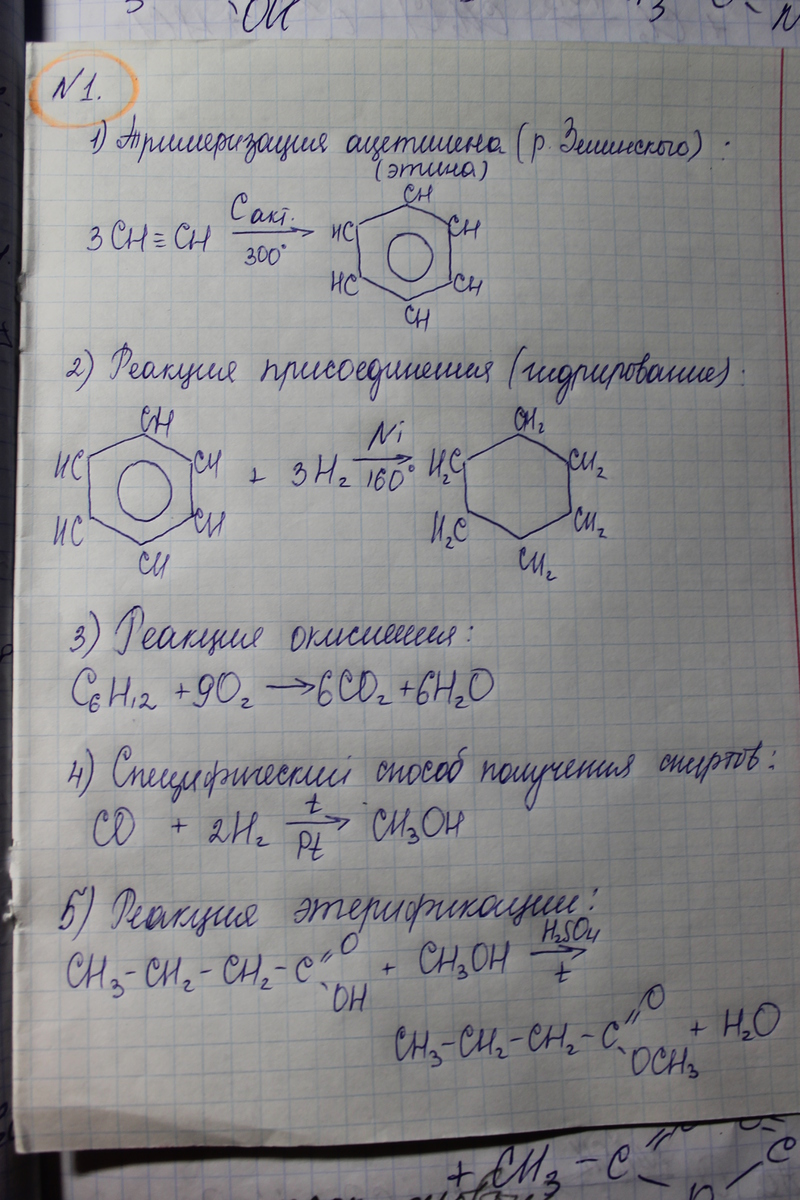 OH
3
N
N1.
1) Тримеризация ацетилена (р. Зелинского):
(этина)
3CH≡CH C акт. 300° HC CH CH CH CH HC
2) Реакция присоединения (гидрирование):
HC CH CH CH CH HC + 3H₂ Ni 160° H₂C CH₂ CH₂ CH₂ CH₂ H₂C
3) Реакция окисления:
C₆H₁₂ + 9O₂ → 6CO₂ + 6H₂O
4) Специфический способ получения спиртов:
CO + 2H₂ t Pt → CH₃OH
5) Реакция этерификации:
CH₃-CH₂-CH₂-C=O OH + CH₃OH H₂SO₄ t →
CH₃-CH₂-CH₂-C=O OCH₃ + H₂O
+ CH₃ - C
C